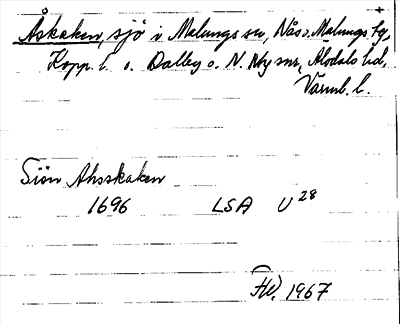 Åskaken, sjö i Malungs sn, Nås o. Malungs tg,
Kopp. l. o. Dalby o. N. Ny snr, Älvdals hd,
Värml. l.
Siön Ahsskaken
1696 LSA U 28
HW. 1967